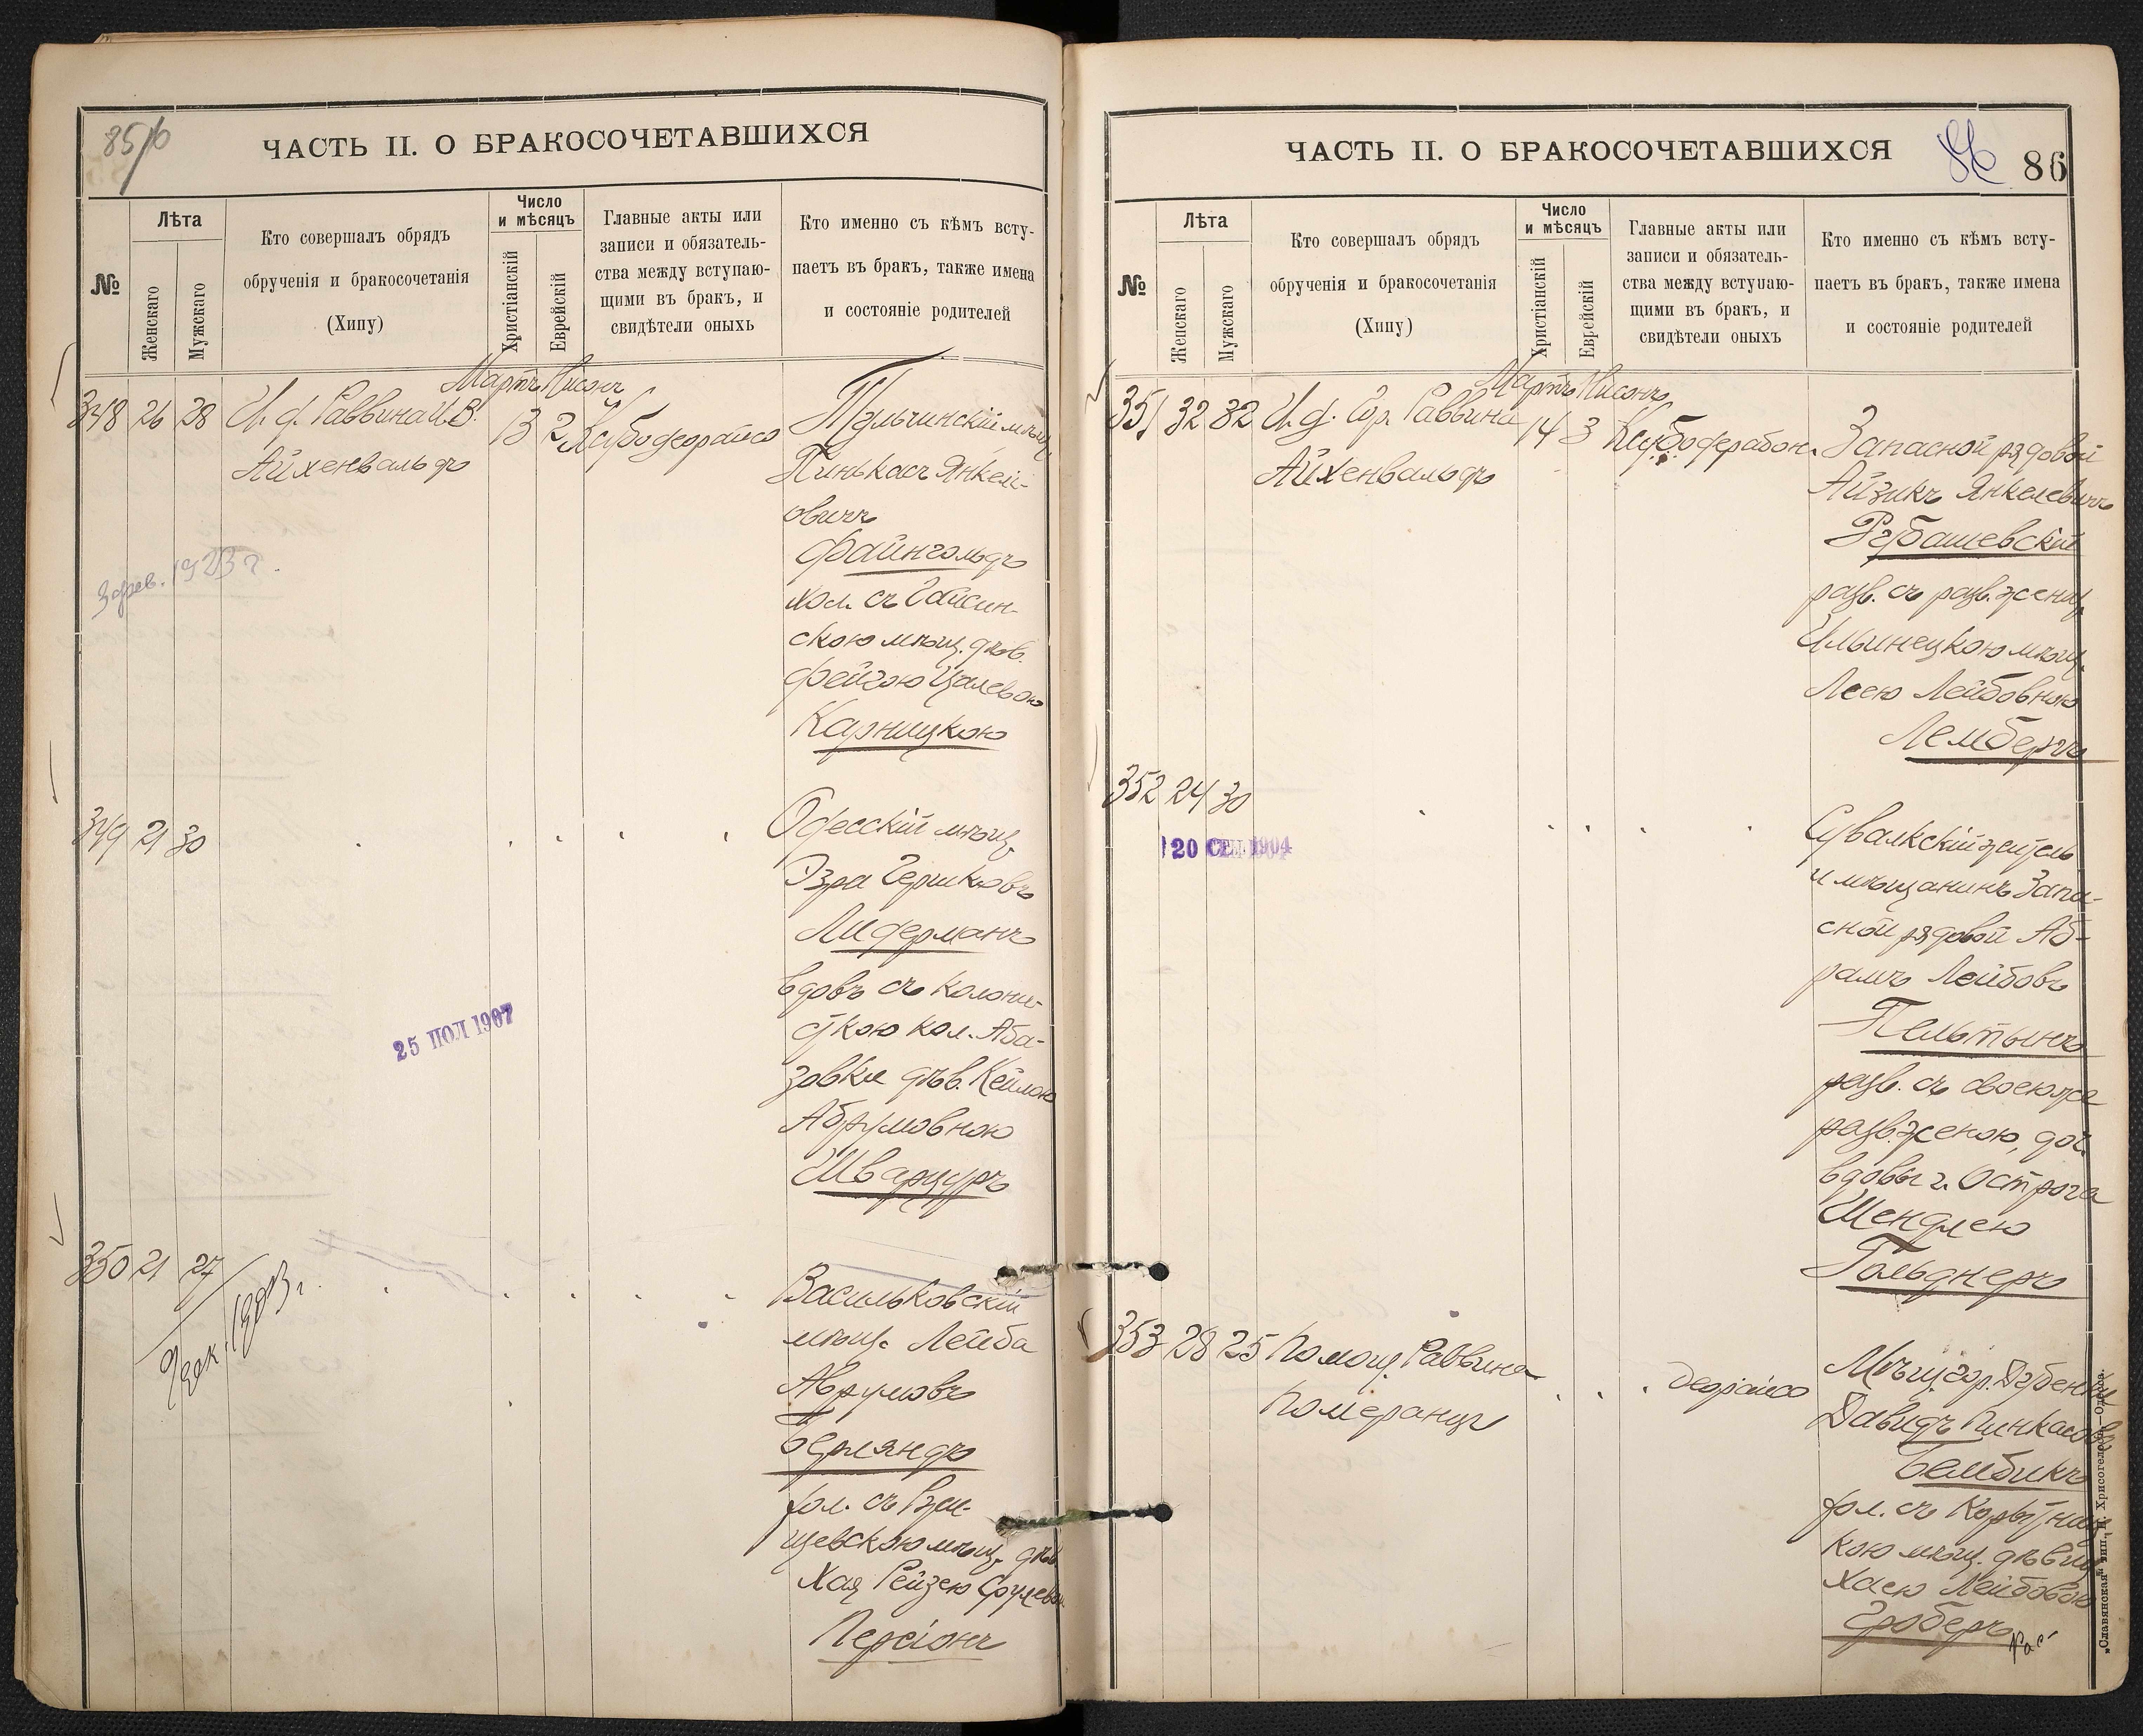 85/об
ЧАСТЬ II. О БРАКОСОЧЕТАВШИХСЯ
№
Лѣта
Женскаго
Мужскаго
Кто совершалъ обрядъ
обрученія и бракосочетанія
(Хипу)
Число
и мѣсяцъ
Христіанскій
Еврейскій
Главные акты или
записи и обязатель-
ства между вступаю-
щими въ бракъ, и
свидѣтели оныхъ
Кто именно съ кѣмъ всту-
паетъ въ бракъ, также имена
и состояніе родителей
Мартъ Нисонъ
348 26 28 И. д. Раввина И.В. 13 2
Айхенвальдъ
Тульчинскій мѣщ.
Пинькасъ Янкель-
овичъ
Файнгольдъ
хол. съ Гайсин-
скою мѣщ. дѣв.
Фейгою Цалевою
Карницкою
349 21 30
Одесскій мѣщ.
Эзра Гершковъ
Лидерманъ
вдовъ съ колони-
сткою кол. Аба-
зовка дѣв. Кейлою
Абрумовною
Шварцуръ
25 ПОЛ 1907
350 21 27
Васильковскій
мѣщ. Лейба
Аврумовъ
Берляндъ
хол. съ Рзи-
щевскою мѣщ. дѣв.
Хая Рейзею Срулевою
Персіонъ
ЧАСТЬ II. О БРАКОСОЧЕТАВШИХСЯ
86
86
№
Лѣта
Женскаго
Мужскаго
Кто совершалъ обрядъ
обрученія и бракосочетанія
(Хипу)
Число
и мѣсяцъ
Христіанскій
Еврейскій
Главные акты или
записи и обязатель-
ства между вступаю-
щими въ бракъ, и
свидѣтели оныхъ
Кто именно съ кѣмъ всту-
паетъ въ бракъ, также имена
и состояніе родителей
Мартъ Нисонъ
351 32 32 И. д. Гор. Раввина 14 3
Айхенвальдъ
Запасной рядовой
Айзикъ Янкелевичъ
Рубашевскій
разв. съ разв. женщ.
Ильинецкою мѣщ.
Леею Лейбовною
Лембергъ
352 24 30
20 СЕН 1904
Сувалкскій житель
и мѣщанинъ Запа-
сной рядовой Аб-
рамъ Лейбовъ
Пельтынъ
разв. съ своею же
разв. женою, доч.
вдовы г. Острога
Шендлею
Гольднеръ
353 28 25 Помощ. Раввина
Померанцъ
Мѣщ. гор. Дубенки
Давидъ Пинкасовъ
Бембикъ
хол. съ Корытниц-
кою мѣщ. дѣвиц.
Хаею Лейбовою
Гроберъ
„Славянская“ тип. Н. Хрисогелосъ.—Одесса.